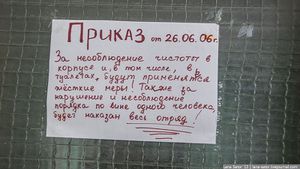 Приказ от 26.06.06г.
За несоблюдение чистоты в
корпусе и, в том числе, в
туалетах, будут применяться
жёсткие меры! Также за
нарушение и несоблюдение
порядка по вине одного человека,
будет наказан весь отряд!